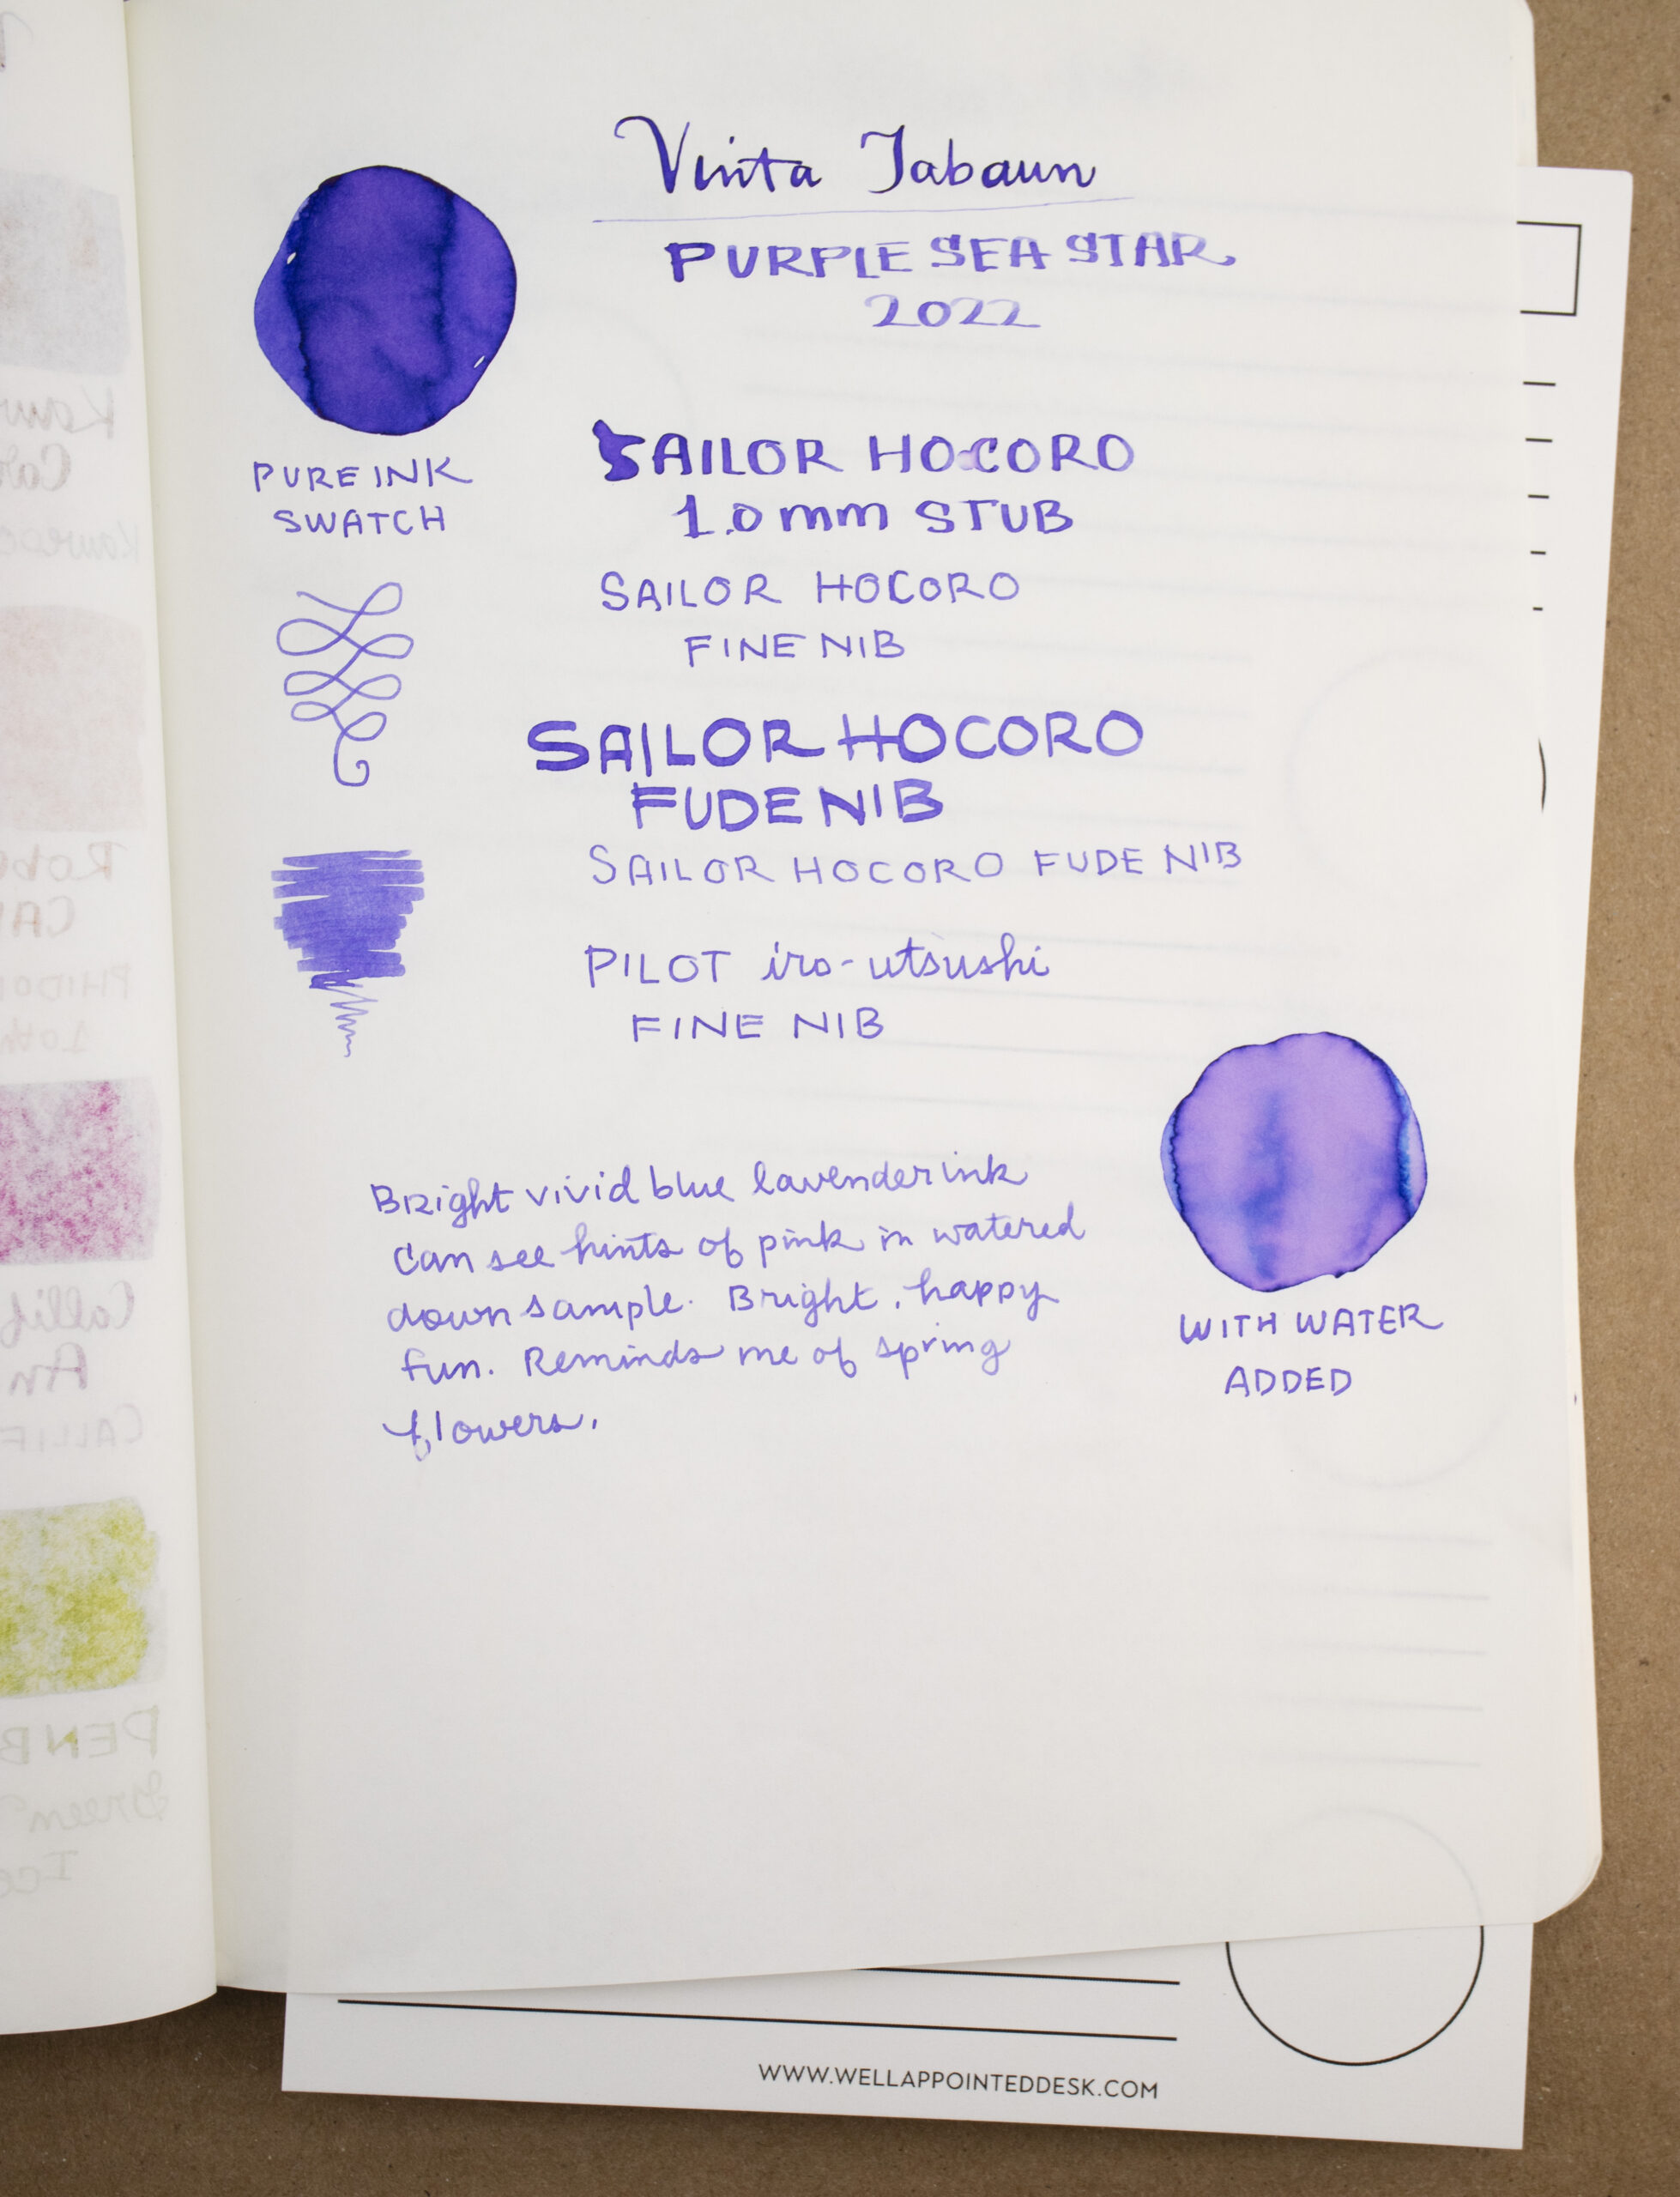 Vinta Jabaun
PURPLE SEA STAR
2022
PURE INK
SWATCH
SAILOR HOCORO
1.0 mm STUB
SAILOR HOCORO
FINE NIB
SAILOR HOCORO
FUDE NIB
SAILOR HOCORO FUDE NIB
PILOT iro-utsushi
FINE NIB
Bright vivid blue lavender ink
Can see hints of pink in watered
down sample. Bright, happy
fun. Reminds me of spring
flowers.
WITH WATER
ADDED
WWW.WELLAPPOINTEDDESK.COM